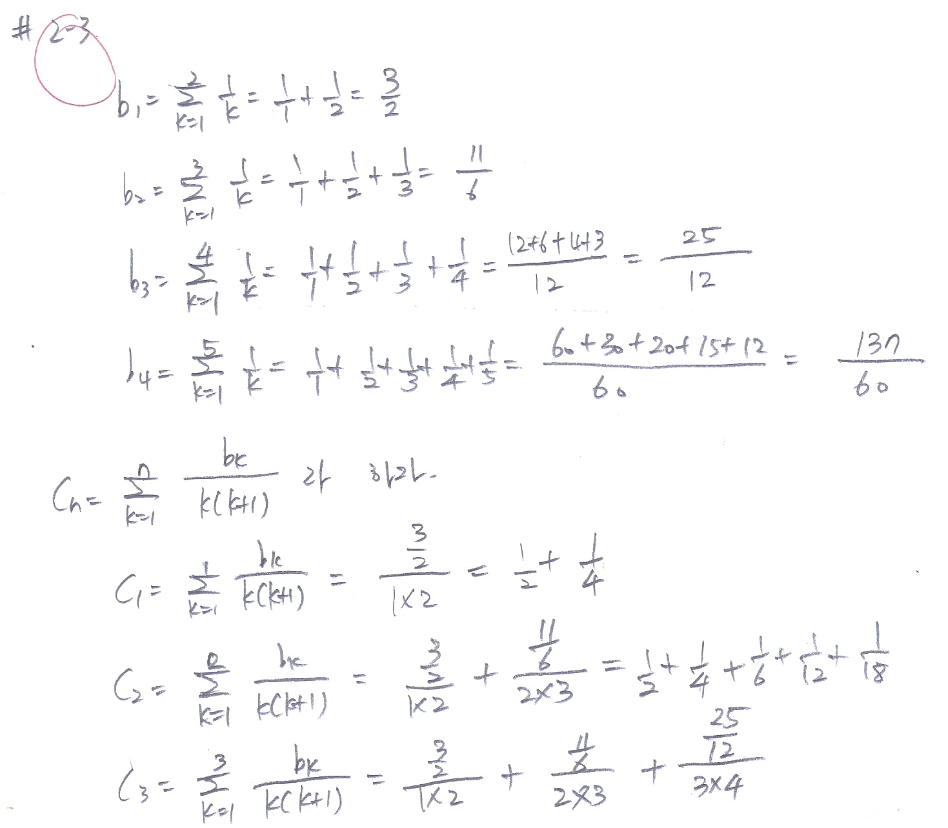 # 2-3
b₁ = Σ_{k=1}^{2} 1/k = 1/1 + 1/2 = 3/2
b₂ = Σ_{k=1}^{3} 1/k = 1/1 + 1/2 + 1/3 = 11/6
b₃ = Σ_{k=1}^{4} 1/k = 1/1 + 1/2 + 1/3 + 1/4 = (12+6+4+3)/12 = 25/12
b₄ = Σ_{k=1}^{5} 1/k = 1/1 + 1/2 + 1/3 + 1/4 + 1/5 = (60+30+20+15+12)/60 = 137/60
Cₙ = Σ_{k=1}^{n} bₖ/(k(k+1)) 라 하라.
C₁ = Σ_{k=1}^{1} bₖ/(k(k+1)) = (3/2)/(1×2) = 1/2 + 1/4
C₂ = Σ_{k=1}^{2} bₖ/(k(k+1)) = (3/2)/(1×2) + (11/6)/(2×3) = 1/2 + 1/4 + 1/6 + 1/12 + 1/18
C₃ = Σ_{k=1}^{3} bₖ/(k(k+1)) = (3/2)/(1×2) + (11/6)/(2×3) + (25/12)/(3×4)